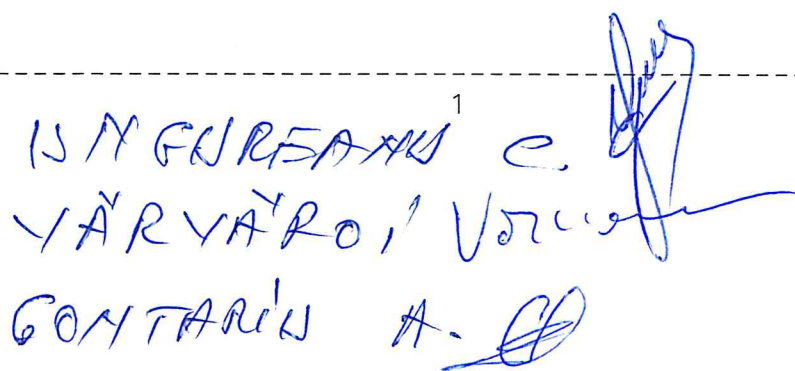 1
UNGUREANU C.
VĂRVĂROI
GONTARIU A.